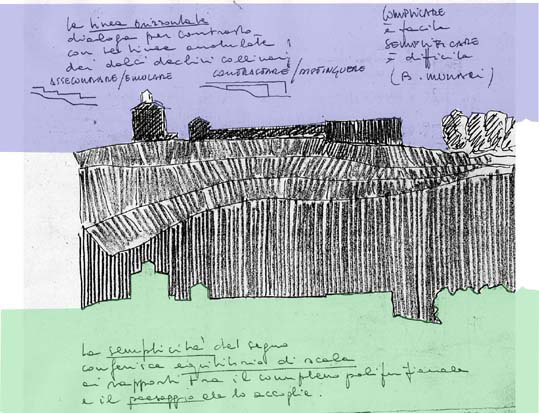 la linea orizzontale
dialoga per contrasto
con la linea ondulata
dei dolci declivi collinari
ASSECONDARE/EMULARE
CONTRASTARE/DISTINGUERE
COMPLICARE
è facile
SEMPLIFICARE
è difficile
(B. MUNARI)
la semplicità del segno
conferisce equilibrio di scala
ai rapporti tra il complesso polifunzionale
e il paesaggio che lo accoglie.